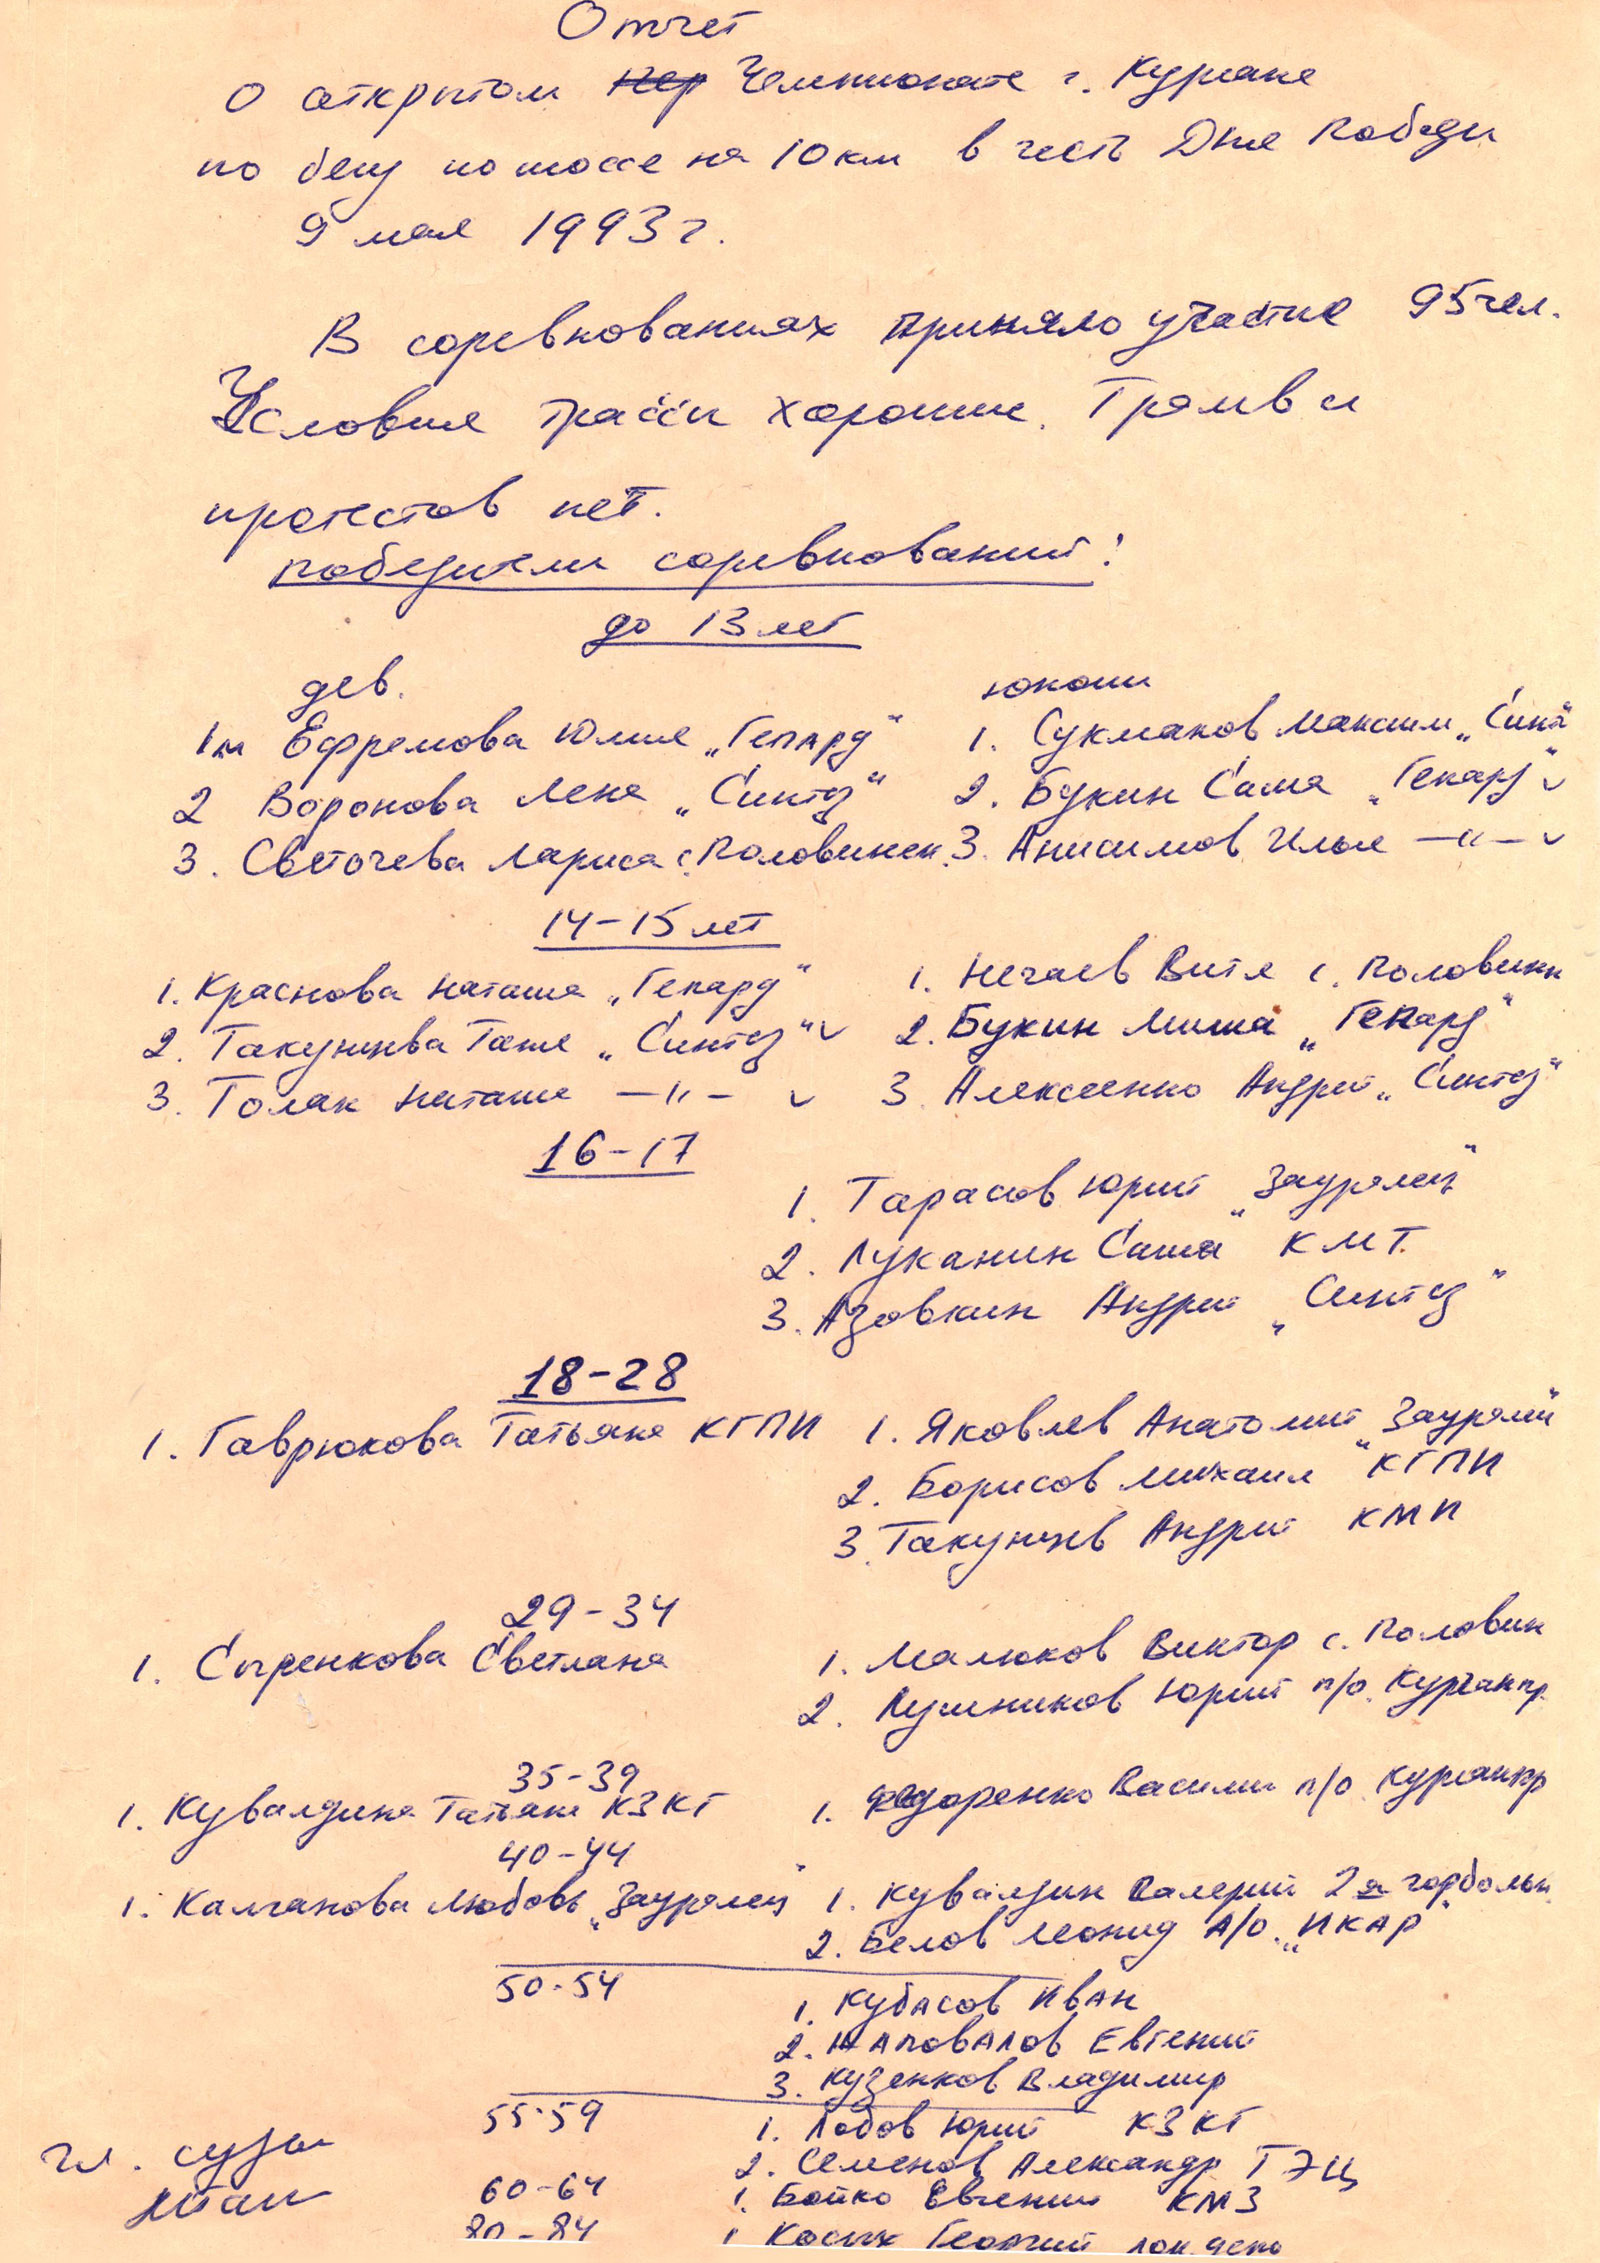 Отчет
О открытом Чемпионате г. Кургане
по бегу по шоссе на 10 км в честь Дня Победы
9 мая 1993 г.
В соревнованиях приняло участие 95 чел.
Условия трассы хорошие. Травм и
протестов нет.
победители соревнований:
до 13 лет
дев. юноши
1м Ефремова Юлия „Гепард" 1. Сукманов Максим „Синт"
2 Воронова Лена „Синтез" 2. Букин Саша „Гепард" v
3. Светочева Лариса с. Половинск. 3. Анисимов Илья —"— v
14-15 лет
1. Краснова Наташа „Гепард" 1. Нечаев Витя с. Половинн
2. Такунцева Таня „Синтез" v 2. Букин Миша „Гепард"
3. Толак Наташа —"— v 3. Алексеенко Андрей „Синтез"
16-17
1. Тарасов Юрий „Зауралец"
2. Луканин Саша КМТ.
3. Азовкин Андрей „Синтез"
18-28
1. Гаврюкова Татьяна КГПИ 1. Яковлев Анатолий „Зауралец"
2. Борисов Михаил КГПИ
3. Такунцев Андрей КМИ
29-34
1. Сыренкова Светлана 1. Малюков Виктор с. Половин
2. Лушников Юрий п/о Курганпр.
35-39
1. Кувалдина Татьяна КЗКТ 1. Федоренко Василий п/о Курганпр
40-44
1. Калганова Любовь „Зауралец" 1. Кувалдин Валерий 2я горбольн.
2. Белов Леонид А/О „ИКАР"
50-54 1. Кубасов Иван
2. Шаповалов Евгений
3. Кузенков Владимир
55-59 1. Лобов Юрий КЗКТ
гл. судья 2. Семенов Александр ТЭЦ
60-64 1. Бойко Евгений КМЗ
80-84 1 Косых Георгий лок. депо